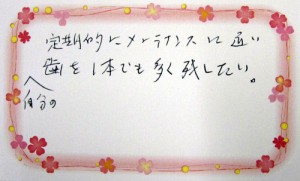 定期的にメンテナンスに通い
歯を1本でも多く残したい。
自分の